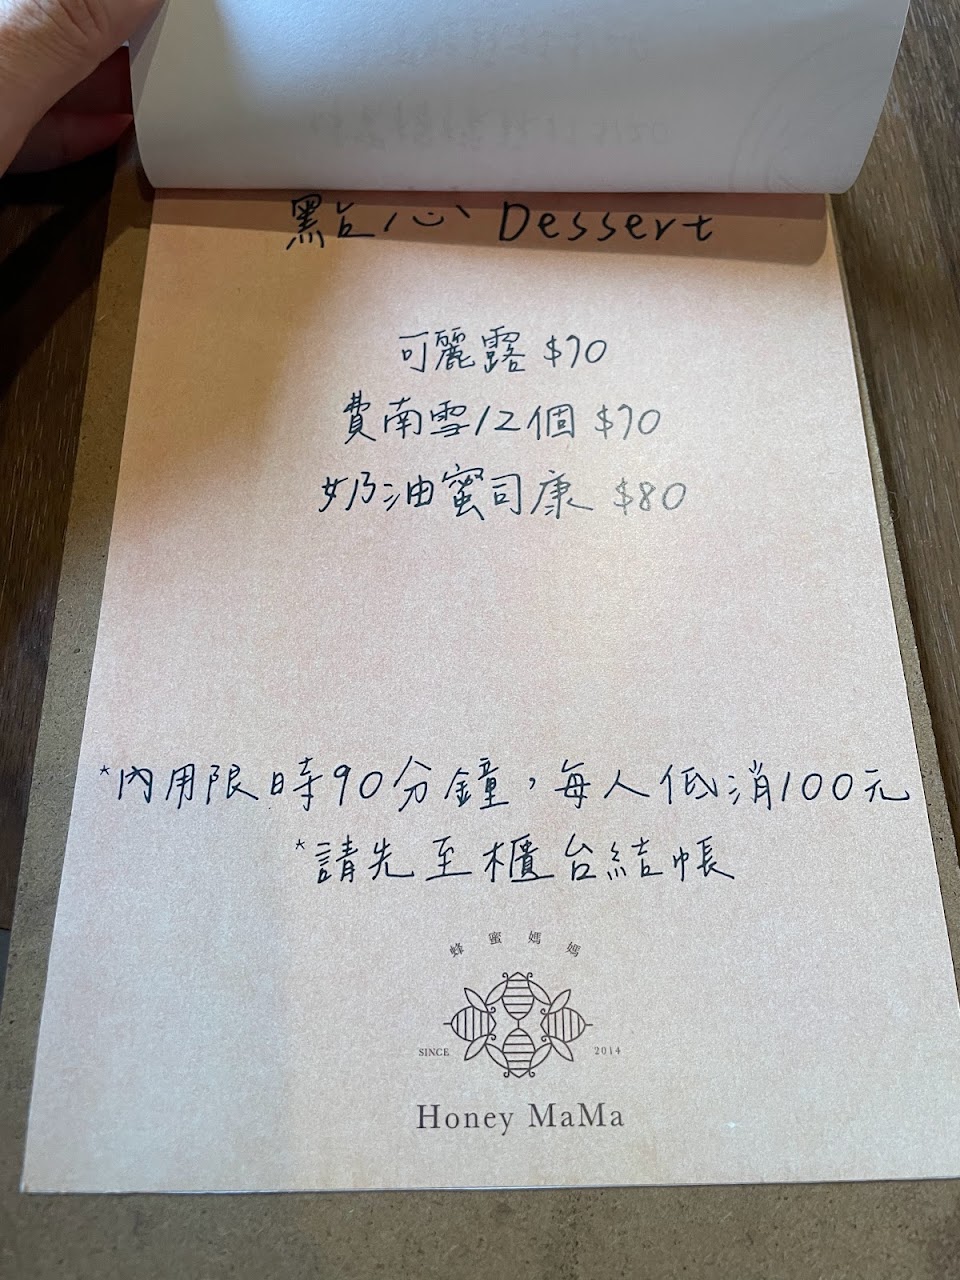 點心 Dessert
可麗露 $70
費南雪/2個 $70
奶油蜜司康 $80
*內用限時90分鐘，每人低消100元
*請先至櫃台結帳
蜂蜜媽媽
SINCE 2014
Honey MaMa